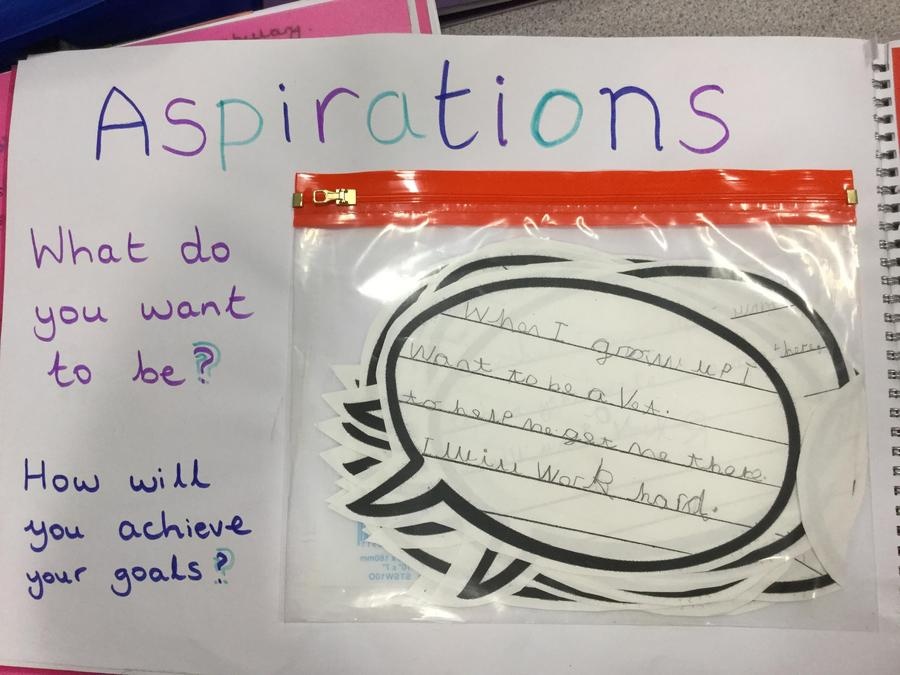 Aspirations
What do
you want
to be?
How will
you achieve
your goals?
When I
grow up I
Want to be a Vet.
to help me get me there.
I will Work hard.
there.